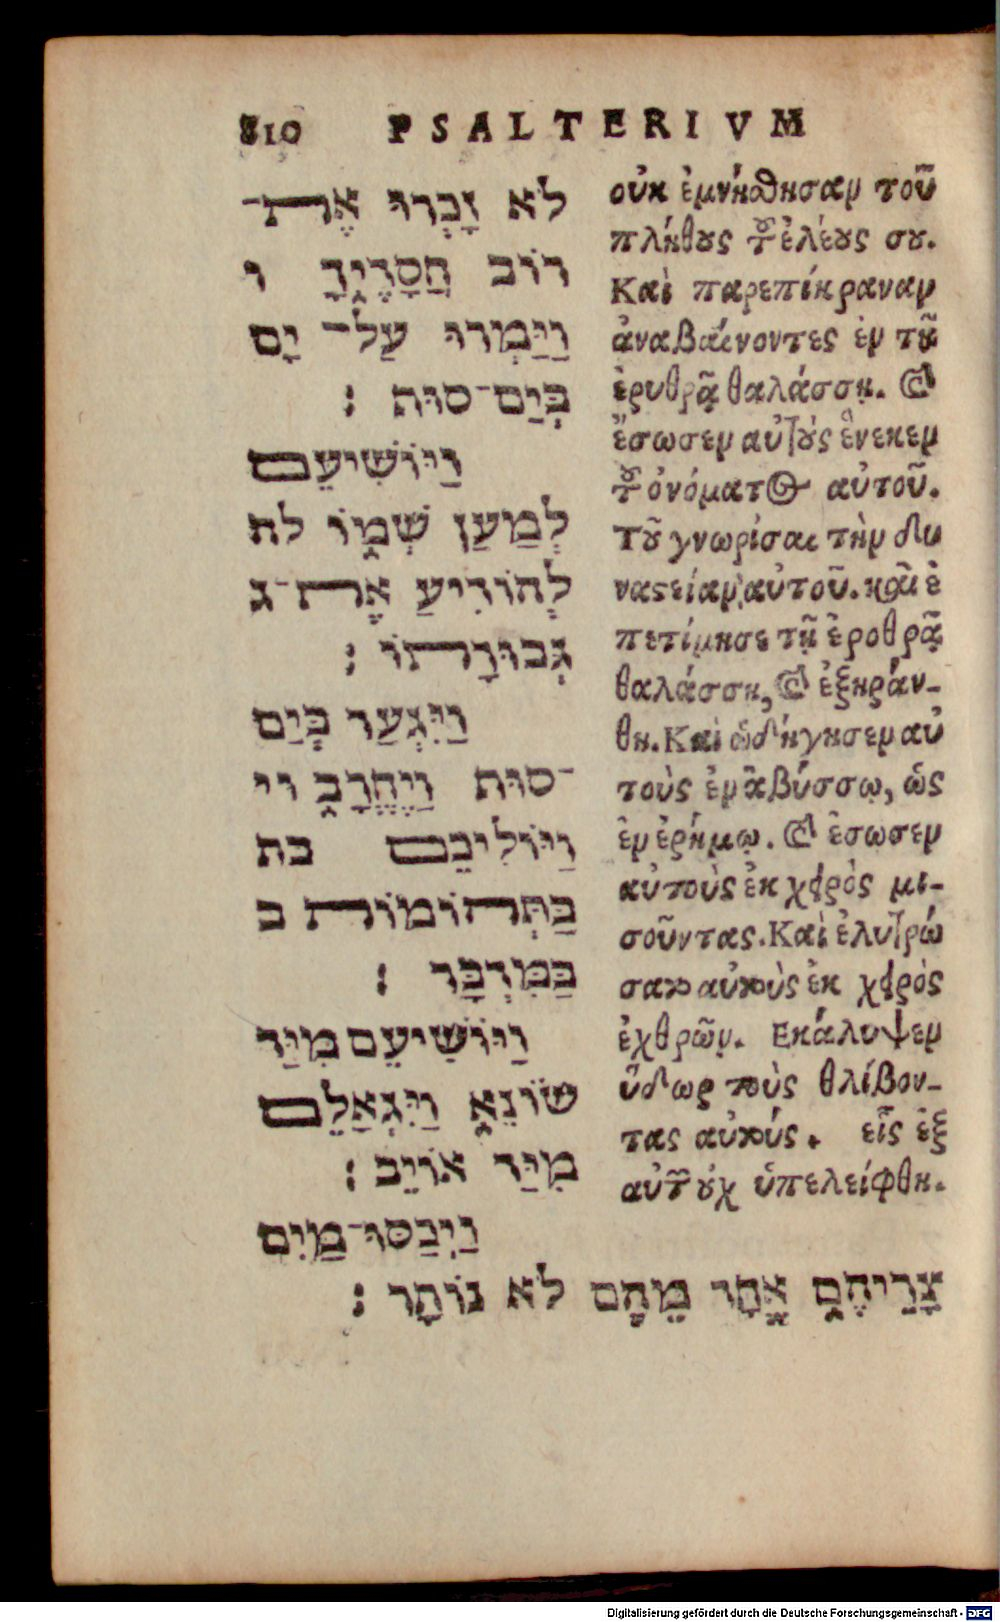 810 PSALTERIVM
לֹא זָכְרוּ אֶת־
רוֹב חֲסָדֶיךָ ו
וַיַּמְרוּ עַל־ יָם
בְּיַם־סוּף :
וַיּוֹשִׁיעֵם
לְמַעַן שְׁמוֹ לה
לְהוֹדִיעַ אֶת־ג
גְּבוּרָתוֹ :
וַיִּגְעַר בְּיַם
־סוּף וַיֶּחֱרָב וי
וַיּוֹלִיכֵם בת
בַּתְּהוֹמוֹת כ
כַּמִּדְבָּר :
וַיּוֹשִׁיעֵם מִיַּד
שׂוֹנֵא וַיִּגְאָלֵם
מִיַּד אוֹיֵב :
וַיְכַסּוּ־מַיִם
צָרֵיהֶם אֶחָד מֵהֶם לֹא נוֹתָר :
οὐκ ἐμνήσθησαν τοῦ
πλήθους τοῦ ἐλέους σου.
Καὶ παρεπίκραναν
ἀναβαίνοντες ἐν τῇ
ἐρυθρᾷ θαλάσσῃ. Καὶ
ἔσωσεν αὐτοὺς ἕνεκεν
τοῦ ὀνόματος αὐτοῦ.
Τοῦ γνωρίσαι τὴν δυ
ναστείαν αὐτοῦ. καὶ ἐ
πετίμησε τῇ ἐροθρᾷ
θαλάσσῃ, καὶ ἐξηράν-
θη. Καὶ ὡδήγησεν αὐ
τοὺς ἐν ἀβύσσῳ, ὡς
ἐν ἐρήμῳ. Καὶ ἔσωσεν
αὐτοὺς ἐκ χειρὸς μι-
σοῦντας. Καὶ ἐλυτρώ
σατο αὐτοὺς ἐκ χειρὸς
ἐχθρῶν. Εκάλυψεν
ὕδωρ τοὺς θλίβον-
τας αὐτούς. εἷς ἐξ
αὐτῶν οὐχ ὑπελείφθη.
Digitalisierung gefördert durch die Deutsche Forschungsgemeinschaft - DFG